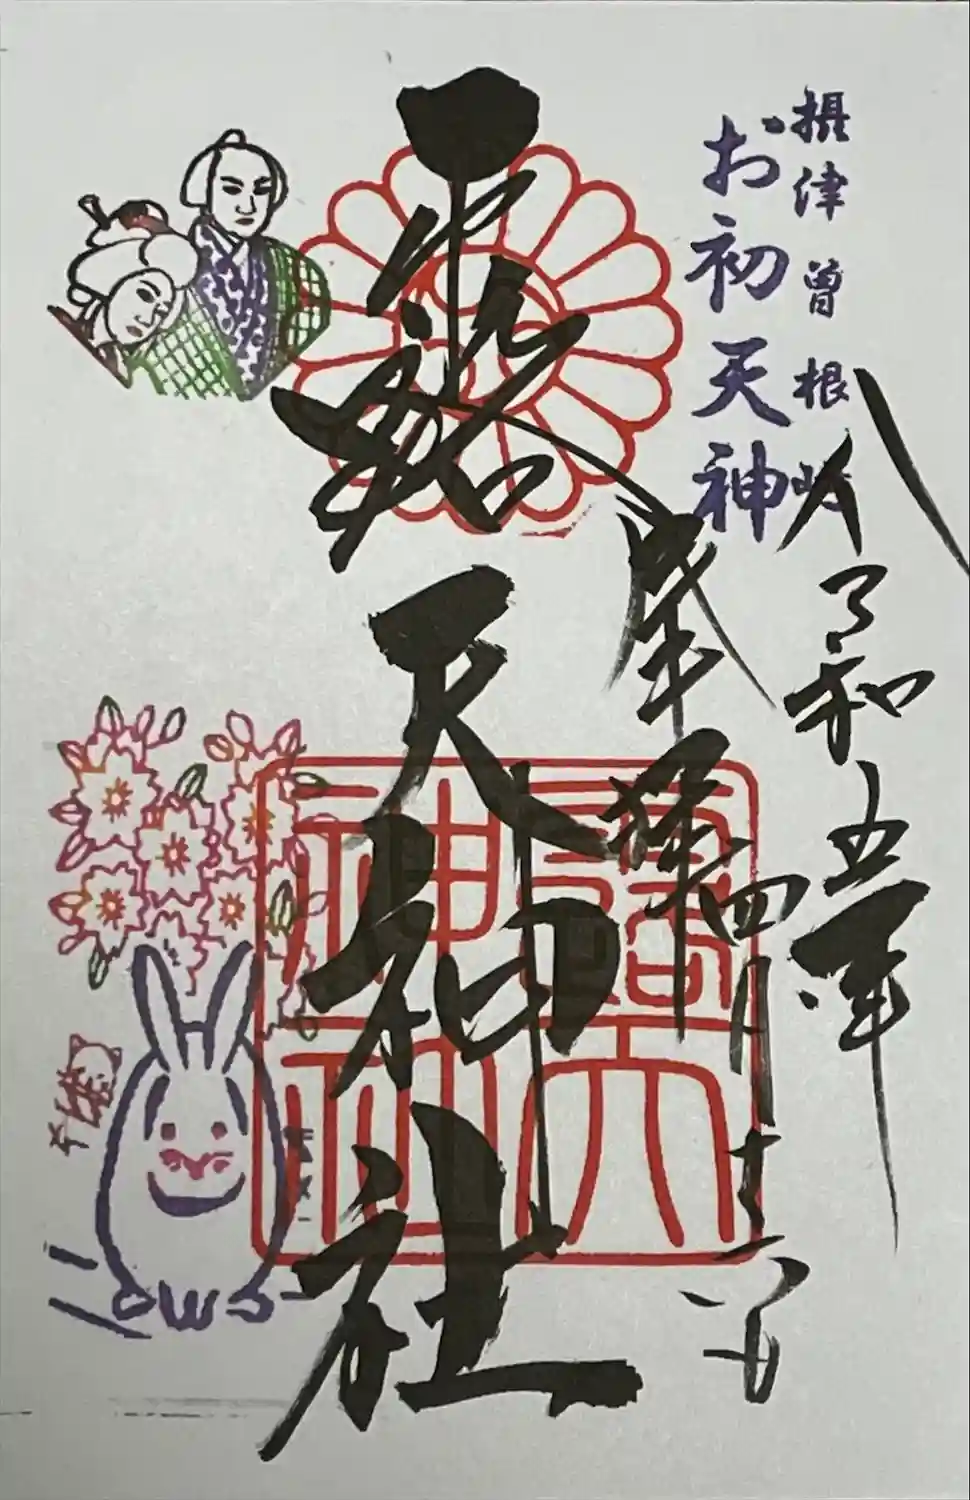 摂津曽根崎
お初天神
令和五年
四月十六日
奉拝
露天神社
露天神社